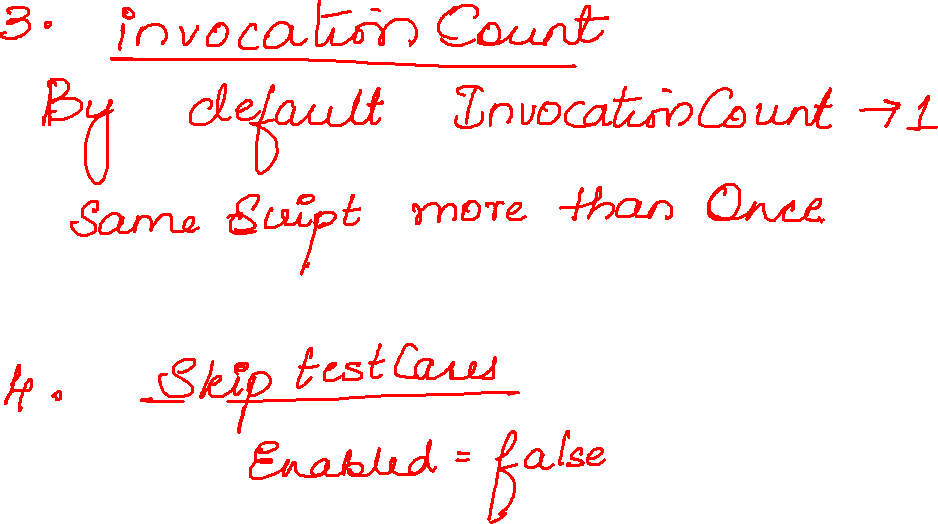 3. invocation Count
By default InvocationCount → 1
Same Script more than Once
4. Skip testCases
Enabled = false